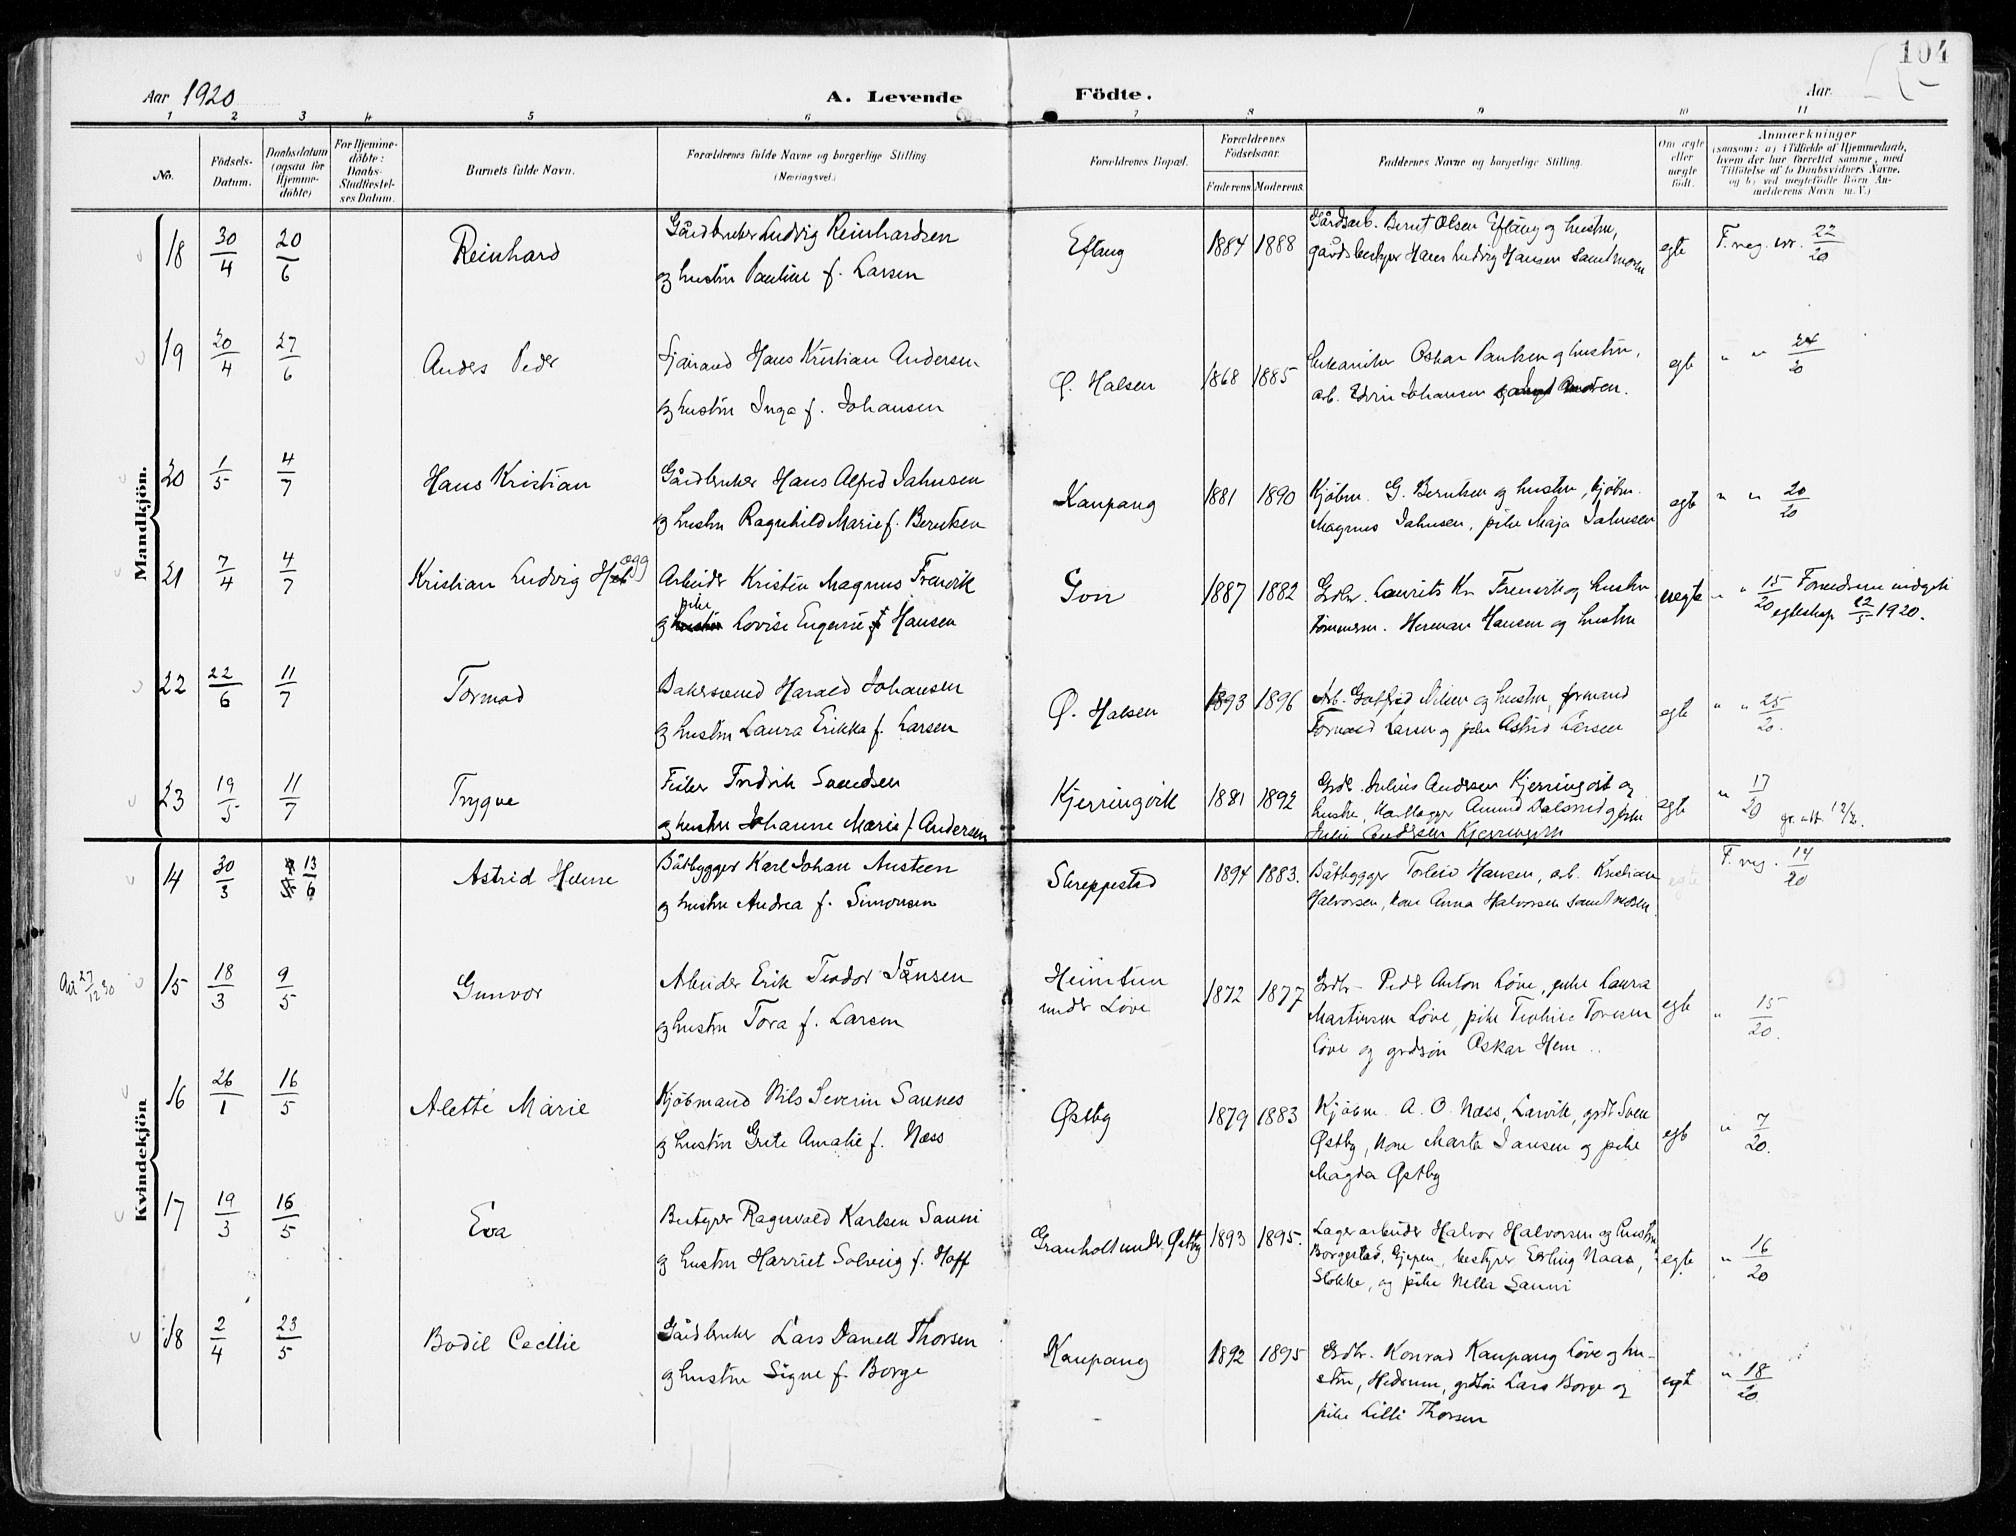 104
Aar 1920
A. Levende
Födte.
Aar
1 2 3 4 5 6 7 8 9 10 11
No.
Födsels-
Datum.
Daabsdatum
(ogsaa for
Hjemme-
döbte)
For Hjemme-
döbte:
Daabs-
Stadfæstel-
ses Datum.
Barnets fulde Navn.
Forældrenes fulde Navne og borgerlige Stilling
(Næringsvei.)
Forældrenes Bopæl.
Forældrenes
Födselsaar.
Faderens. Moderens.
Faddernes Navne og borgerlige Stilling.
Om ægte
eller
uægte
födt.
Anmærkninger
(saasom: a) i Tilfælde af Hjemmedaab,
hvem der har forrettet samme, med
Tilföielse af to Daabsvidners Navne,
og b) ved uegtefödte Börn An-
melderens Navn m. V.)
Mandkjön.
18 30/4 20/6 Reinhard
Gårdbruker Ludvig Reinhardsen
og hustru Pauline f. Larsen
Eftang 1884 1888
Gårdsarb. Bernt Olsen Eftang og hustru,
gårdsbestyrer Hans Ludvig Hansen samt moren
egte F. reg. nr. 22/20
19 20/4 27/6 Anders Peder
Hans Kristian Andersen
og hustru Inga f. Johansen
Ø. Halsen 1868 1885
Mekaniker Oskar Paulsen og hustru,
arb. Edvin Johansen
egte " " 24/20
20 1/5 4/7 Hans Kristian
Gårdbruker Hans Alfred Jahnsen
og hustru Ragnhild Marie f. Berntsen
Kaupang 1881 1890
Kjøbm. G. Berntsen og hustru, kjøbm.
Magnus Jahnsen, pike Maja Jahnsen
egte " " 20/20
21 7/4 4/7 Kristian Ludvig Hegg
Arbeider Kristen Magnus Fremvik
pike
og hustru Lovise Eugenie f. Hansen
Gon 1887 1882
Grdbr. Laurits Kr. Fremvik og hustru
tømmerm. Herman Hansen og hustru
uegte " " 15/20 Foreldrene indgik
egteskap 22/5 1920.
22 22/6 11/7 Tormod
Bakersvend Harald Johansen
og hustru Laura Erikka f. Larsen
Ø. Halsen 1893 1896
Arb. Gotfred Nilsen og hustru, formand
Tormod Larsen og pike Astrid Larsen
egte " " 25/20.
23 19/5 11/7 Trygve
Fisker Fredrik Svendsen
og hustru Johanne Marie f. Andersen
Kjerringvik 1881 1892
Grdbr. Julius Andersen Kjerringvik og
hustru, Amund Dalsrud og pike
Julie Andersen Kjerringvik
egte " 17/20 gr. att. 12/2.
Kvindekjön
14 30/3 13/6 Astrid Helene
Båtbygger Karl Johan Austeen
og hustru Andrea f. Simonsen
Skreppestad 1894 1883.
Båtbygger Torleiv Hansen, arb. Kristian
Halvorsen, kone Anna Halvorsen samt moren.
egte F. reg. 14/20
27/12 30
15 18/3 9/5 Gunvor
Arbeider Erik Teodor Jånsen
og hustru Tora f. Larsen
Heimtun
under Løve
1872 1877
Grdbr. Peder Anton Løve, pike Laura
Martinsen Løve, pike Toresen
Løve og grdsøn Oskar Hem
egte " 15/20.
16 26/1 16/5 Alette Marie
Kjøbmand Nils Severin Sannes
og hustru Grete Amalie f. Næss
Østby 1879 1883
Kjøbm. A. O. Næss, Larvik, grdbr. Sven
Østby, kone Marta Jansen og pike
Magda Østby
egte " 7/20.
17 19/3 16/5 Eva
Bestyrer Ragnvald Karlsen Sanni
og hustru Harriet Solveig f. Hoff
Granholt under Østby 1893 1895.
Lagerarbeider Halvor Halvorsen og hustru
Borgestad, Gjerpen, bestyrer Erling Naas,
Stokke, og pike Nella Sanni
egte " 16/20
18 2/4 23/5 Bodil Cecilie
Gårdbruker Lars Daniel Thorsen
og hustru Signe f. Borge
Kaupang 1892 1895
Grdbr. Konrad Kaupang Løve og hu-
stru, Hedrum, grdsøn Lars Borge og
pike Lilli Thorsen
egte " 18/20.